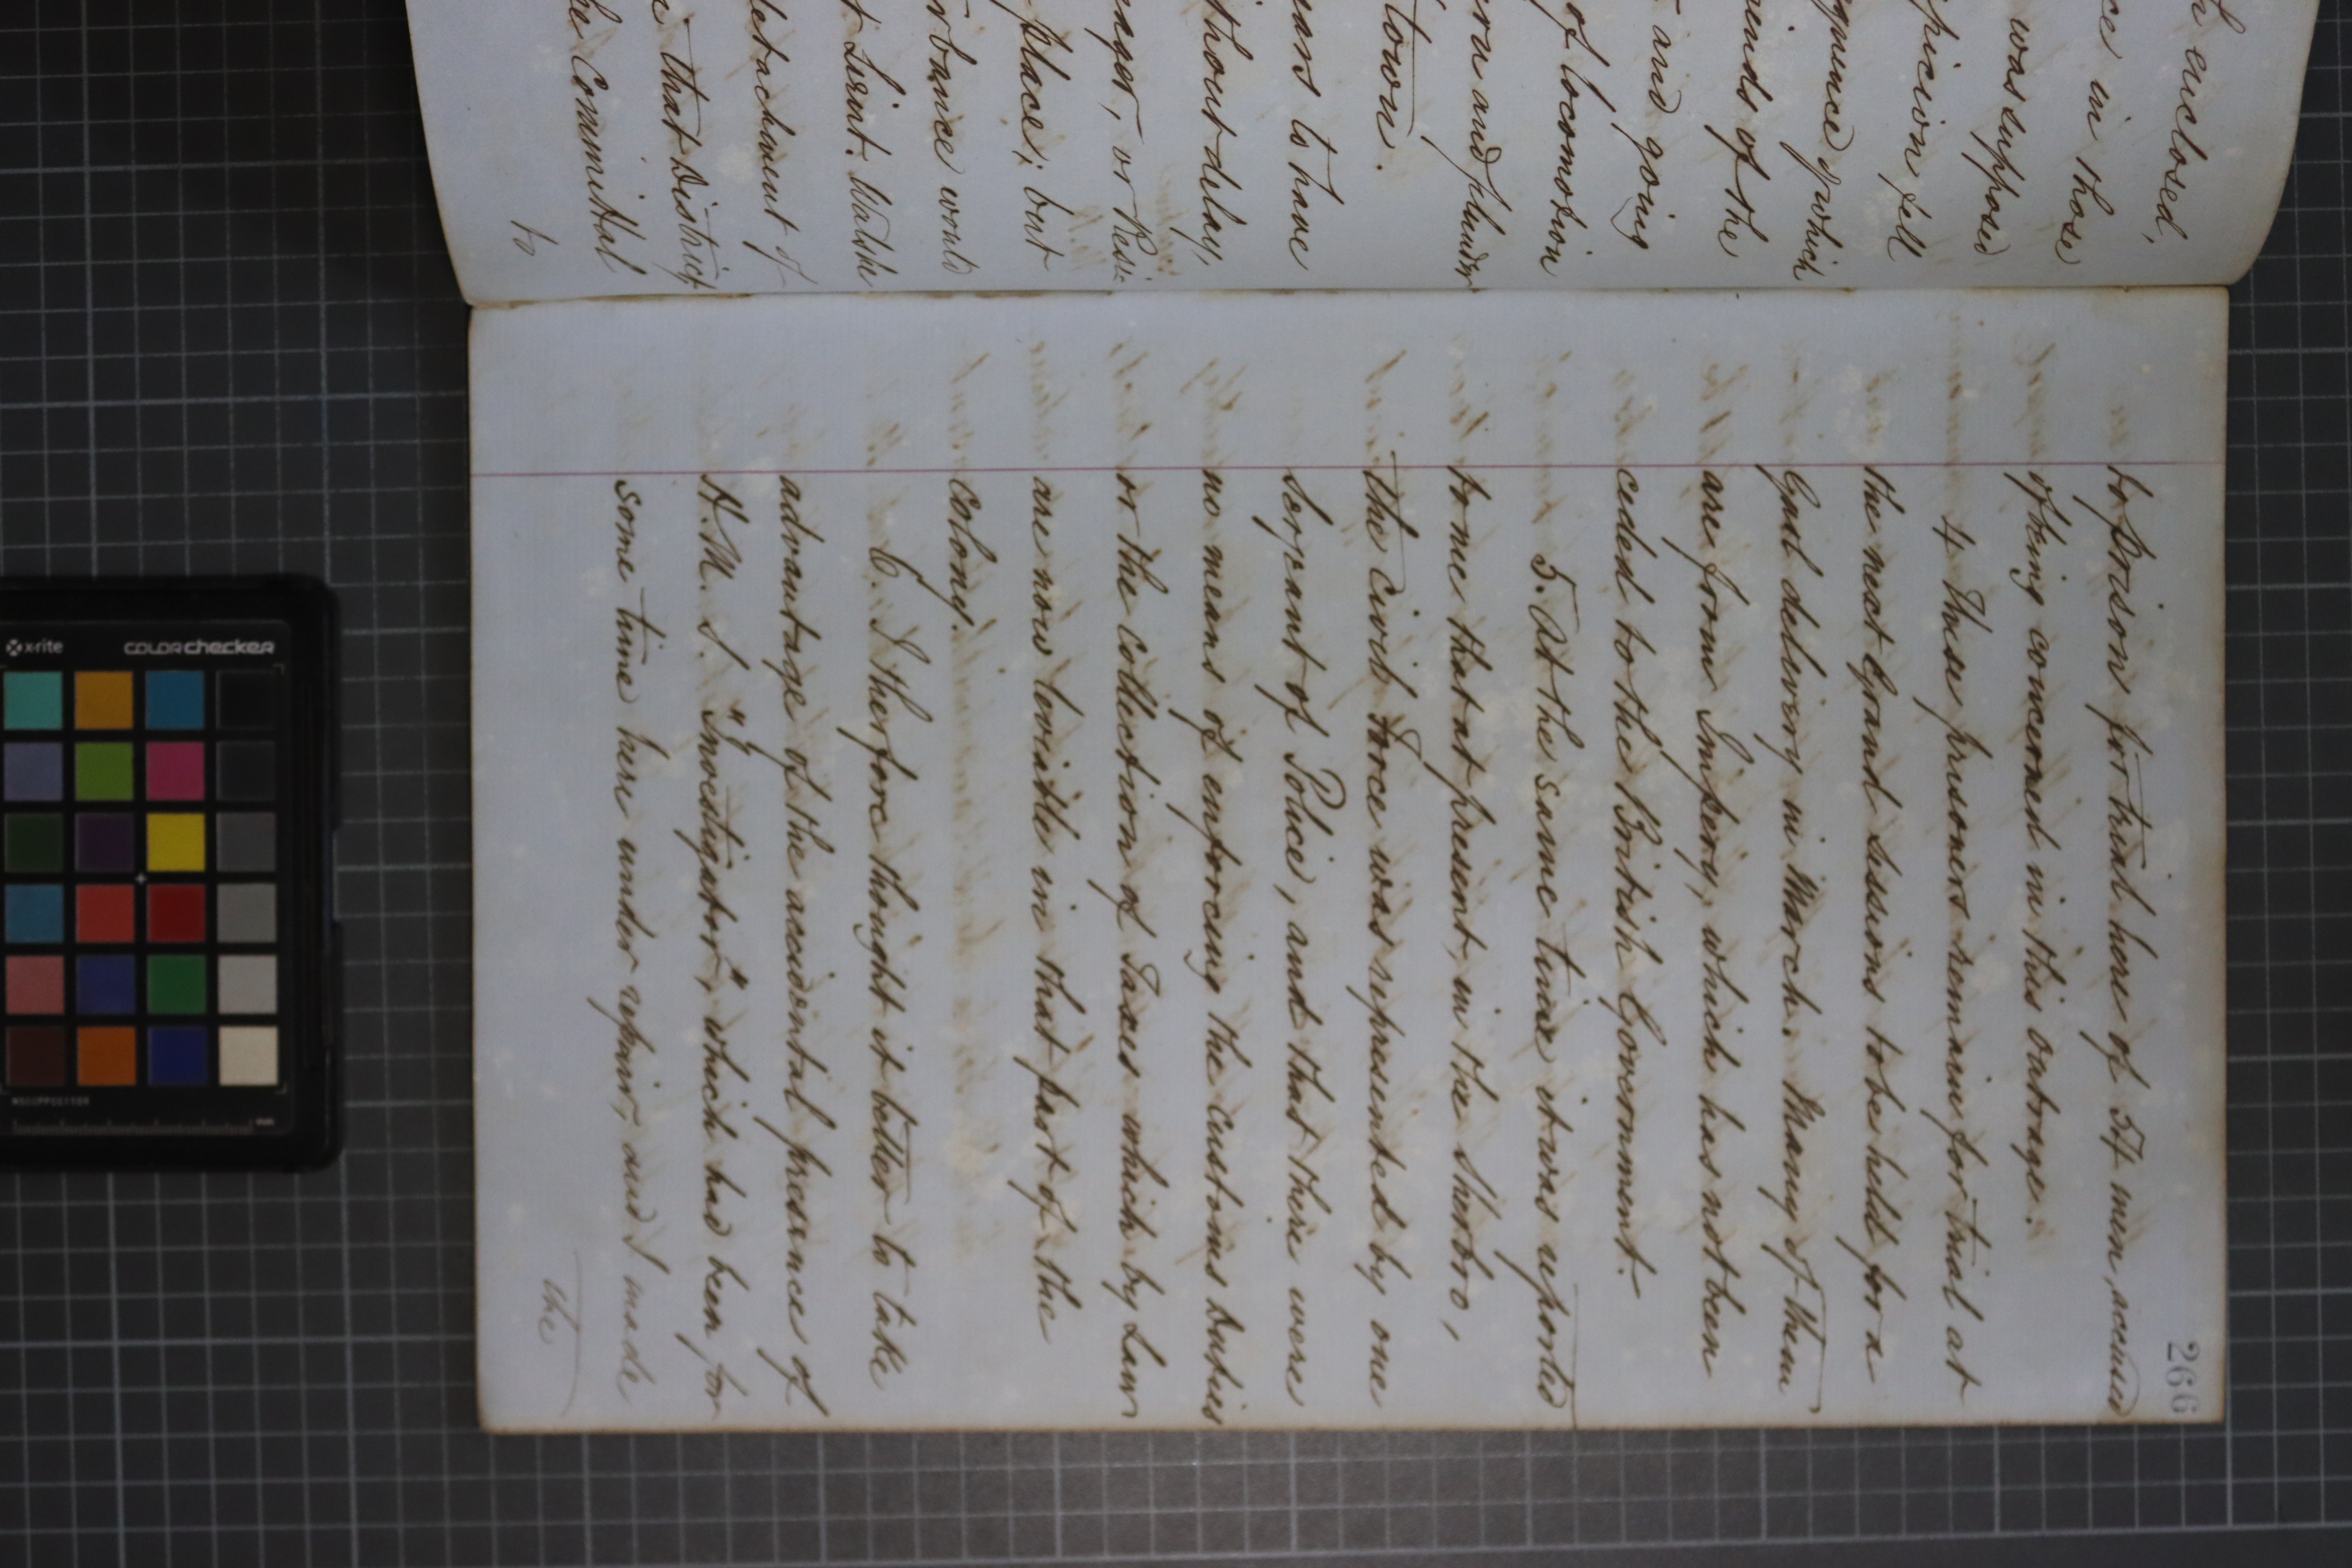 h enclosed,
ce in those
was supposed
picion fell
quence of which
iends of the
and going
of locomotion
rn and plunder
town.
ears to have
thout delay,
nager, or Resi-
place; but
rbance would
t Lieut. Walshe
detachment of
that District
he Committal
to
266
to prison for trial here of 54 men accused
of being concerned in this outrage.
4 These prisoners remain for trial at
the next Grand Sessions to be held for a
Gaol delivery in March. Many of them
are from Impery, which has not been
ceded to the British Government.
5. At the same time it was reported
to me that at present, in the Sherbro,
the Civil Force was represented by one
Serjeant of Police, and that there were
no means of enforcing the Customs duties
or the collection of Taxes which by Law
are now leviable in that part of the
Colony.
6. I therefore thought it better to take
advantage of the accidental presence of
H.M.S. "Investigator", which had been for
some time here under repair, and I made
the
x-rite
colorchecker